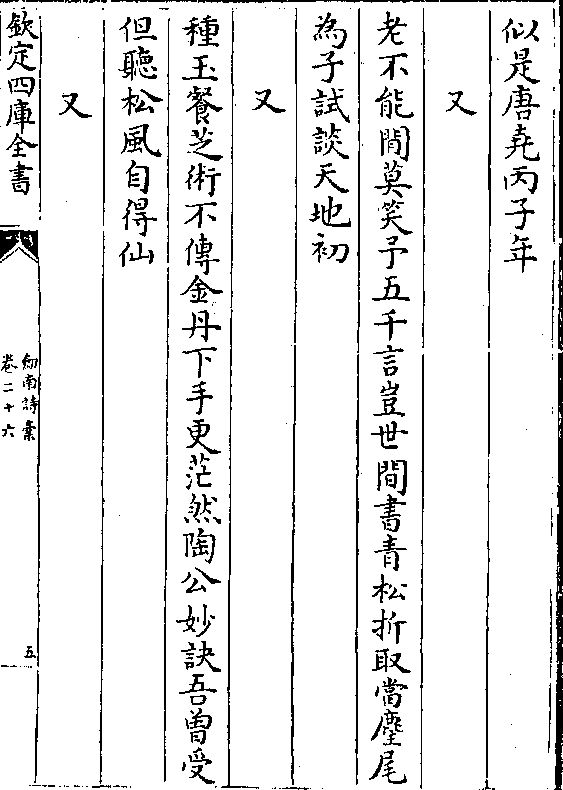 似是唐堯丙子年
又
老不能閒莫笑予五千言豈世間書青松折取當麈尾
為子試談天地初
又
種玉餐芝術不傳金丹下手更茫然陶公妙訣吾曽受
但聽松風自得仙
又
欽定四庫全書
劒南詩稾
卷二十六
五